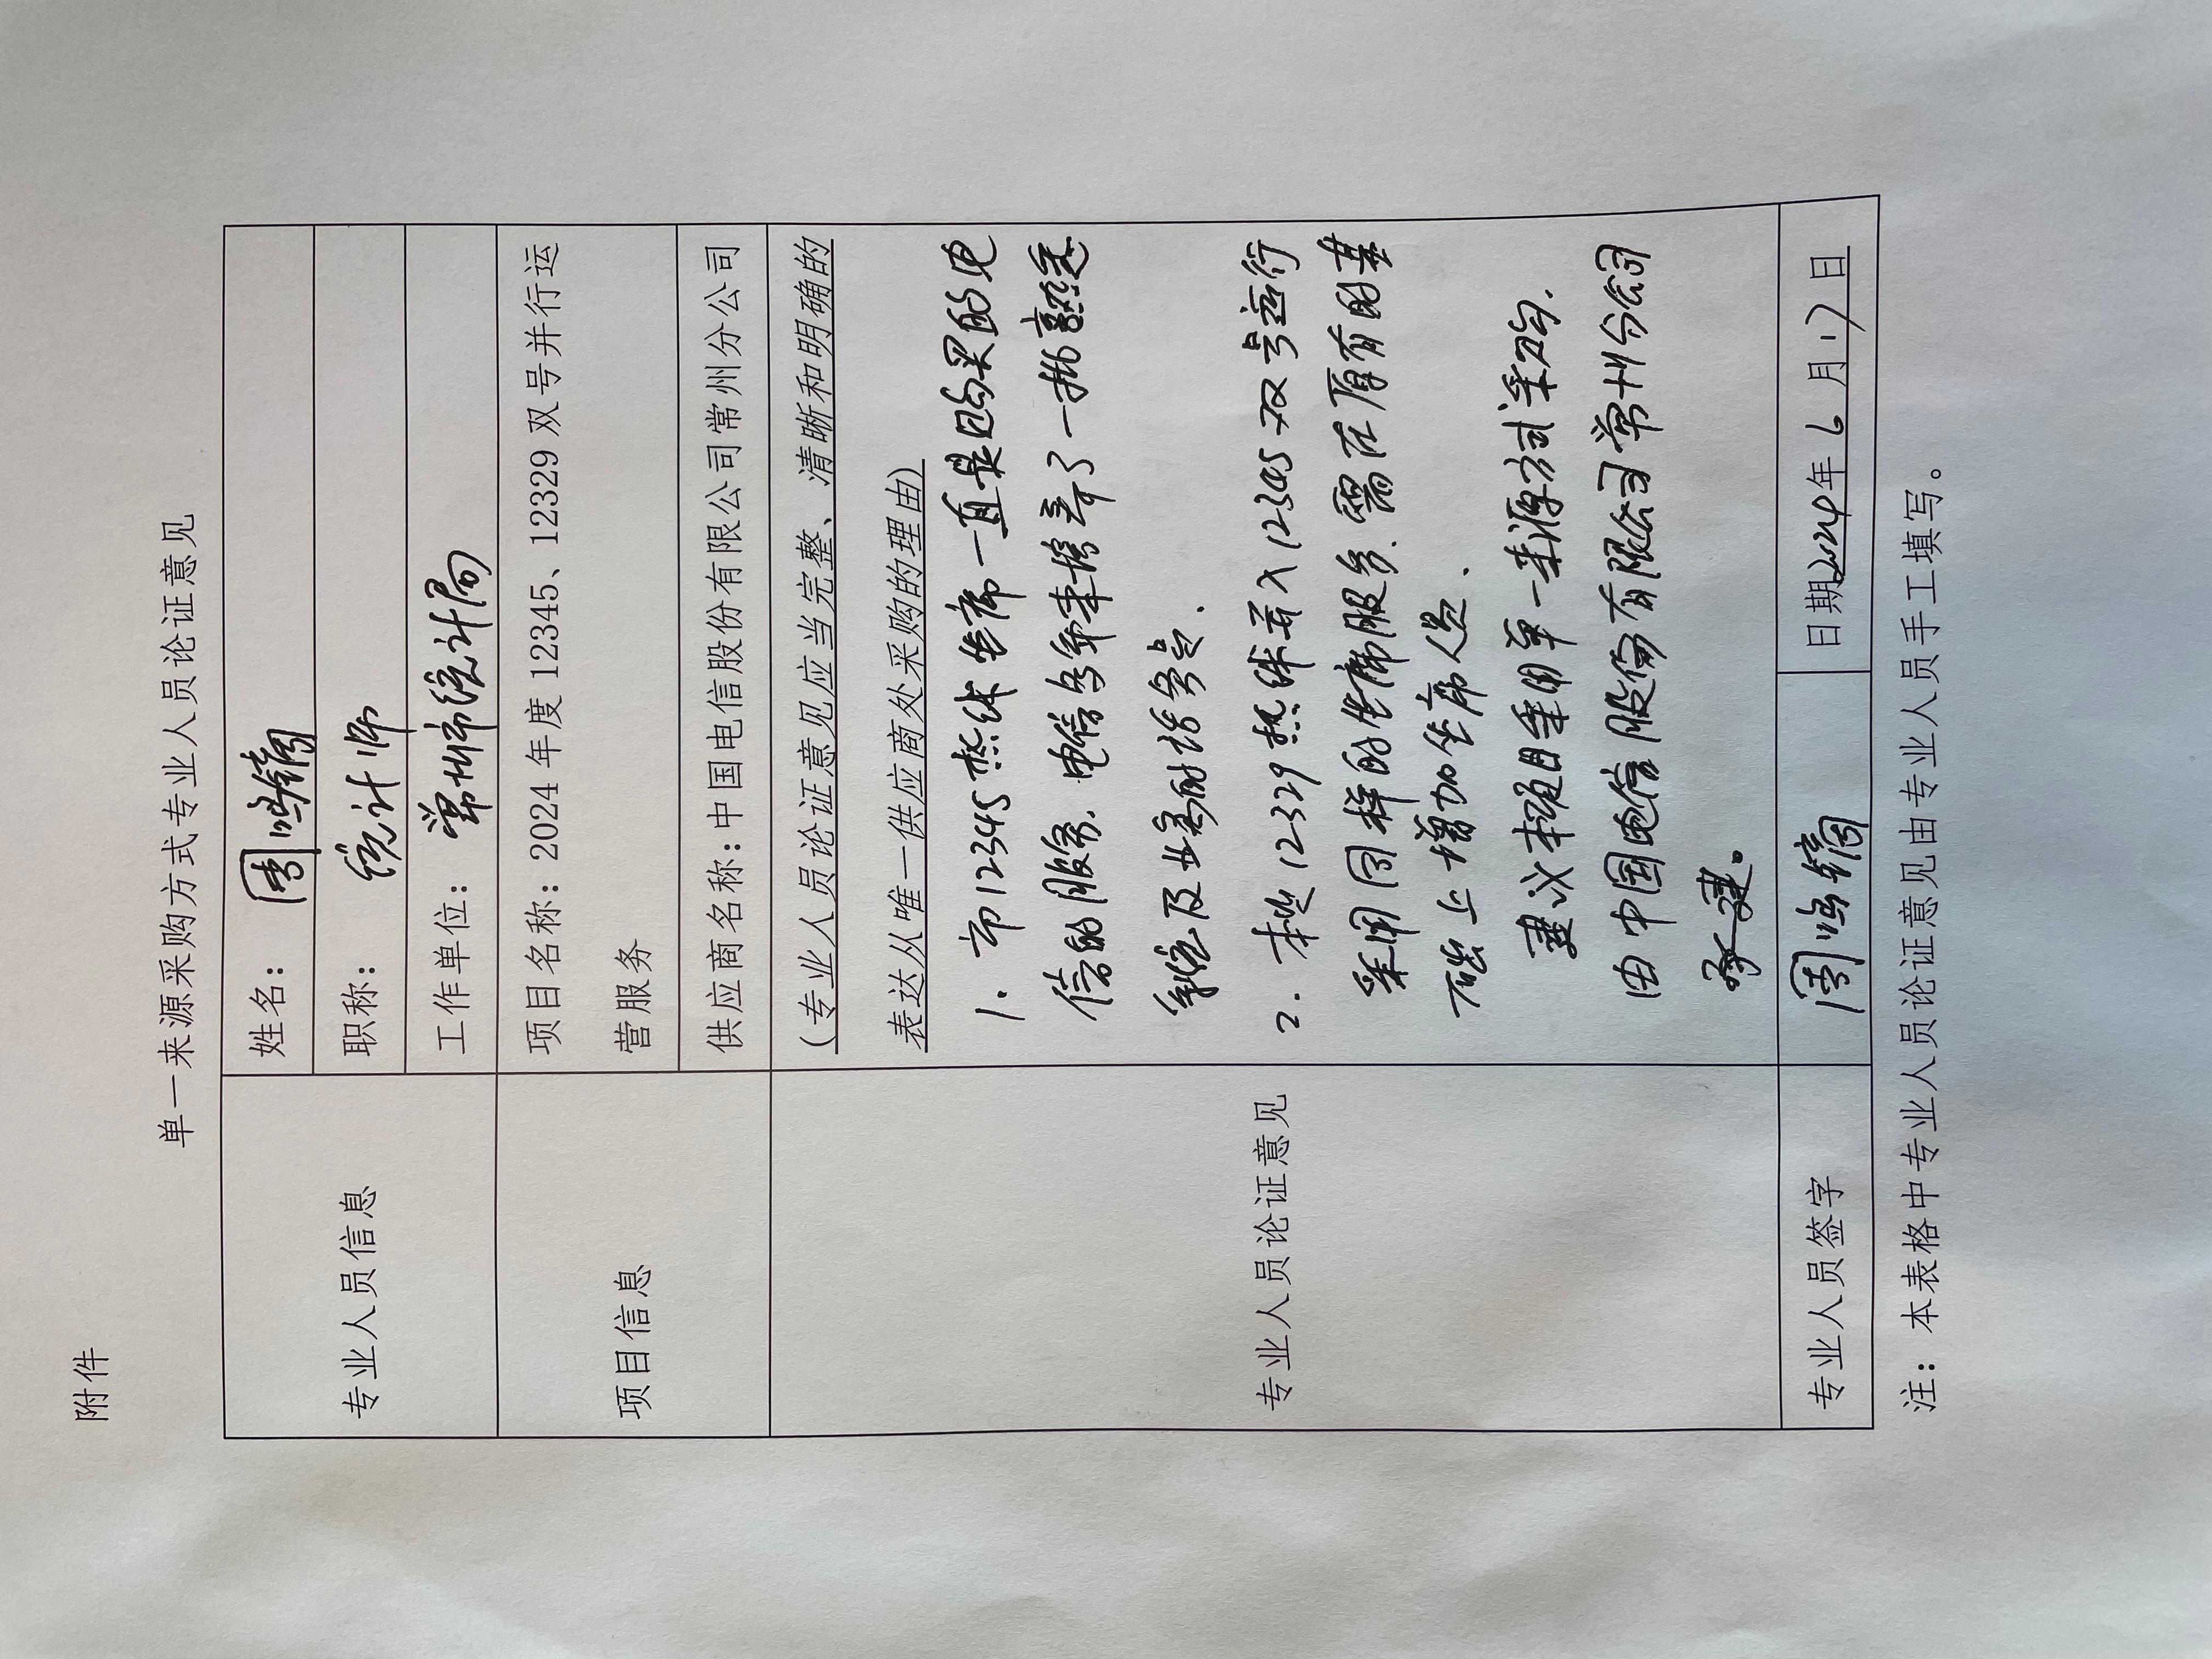 附件
单一来源采购方式专业人员论证意见
专业人员信息
姓名：周鸣镝
职称：统计师
工作单位：常州市统计局
项目信息
项目名称：2024年度12345、12329双号并行运
营服务
供应商名称：中国电信股份有限公司常州分公司
专业人员论证意见
（专业人员论证意见应当完整、清晰和明确的
表达从唯一供应商处采购的理由）
1. 市12345热线坐席一直是购买的电
信的服务. 电信多年来培养了一批熟悉
系统及业务的话务员.
2. 本次12329热线并入12345双号运行
采用同样的坐席服务. 需在原有的基
础上增加坐席人员.
建议本项目采用单一来源方式采购.
由中国电信股份有限公司常州分公司
承建。
专业人员签字
周鸣镝
日期2024年6月17日
注：本表格中专业人员论证意见由专业人员手工填写。